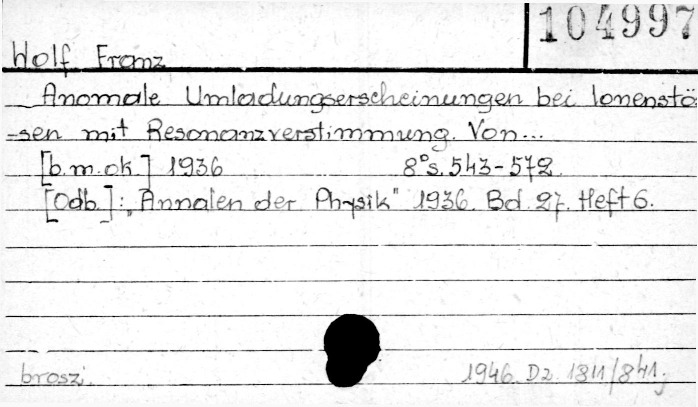 104997
Wolf Franz
Anomale Umladungserscheinungen bei Ionenstö-
=sen mit Resonanzverstimmung. Von...
[b.m.ok.] 1936 8° s. 543-572.
[Odb.]: „Annalen der Physik" 1936. Bd. 27. Heft 6.
brosz. 1946. Dz. 1311/841.